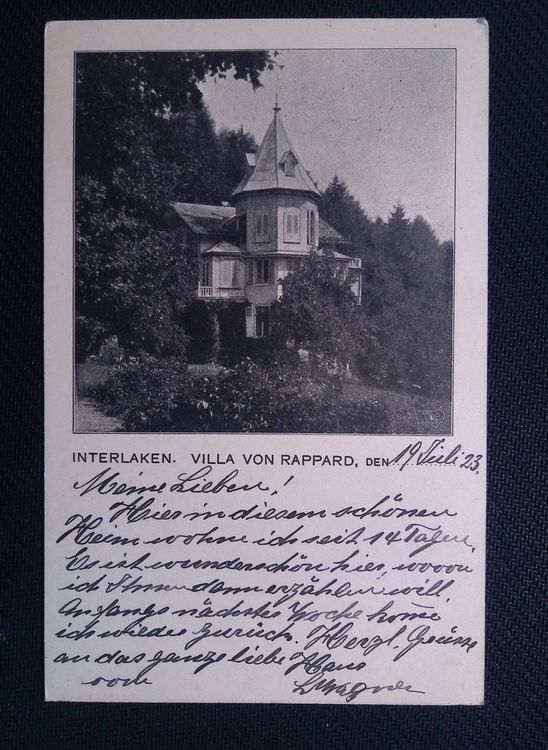 INTERLAKEN. VILLA VON RAPPARD, DEN 19 Juli 23.
Meine Lieben!
Hier in diesem schönen
Heim wohne ich seit 14 Tagen.
Es ist wunderschön hier, wovon
ich Ihnen dann erzählen will.
Anfangs nächster Woche kome
ich wieder zurück. Herzl. Grüsse
an das ganze liebe Haus
von LWagner